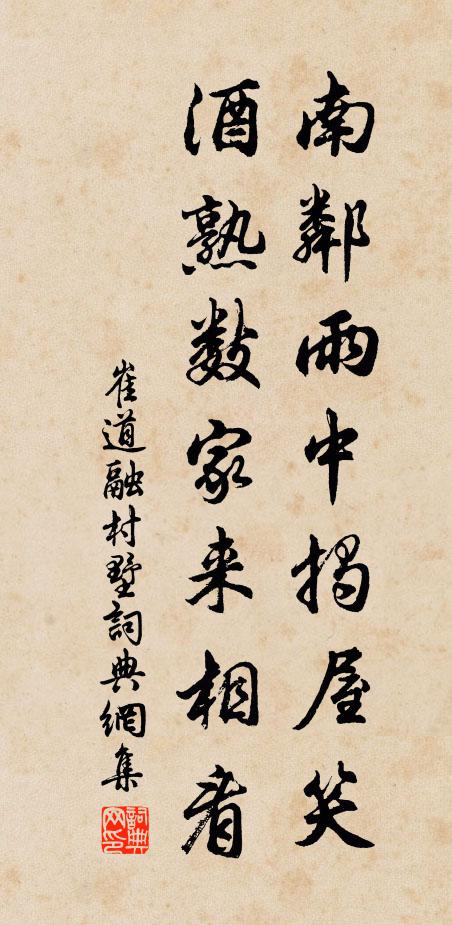 南鄰雨中揭屋笑
酒熟数家来相看
崔道融村墅詞典網集
詞典网印